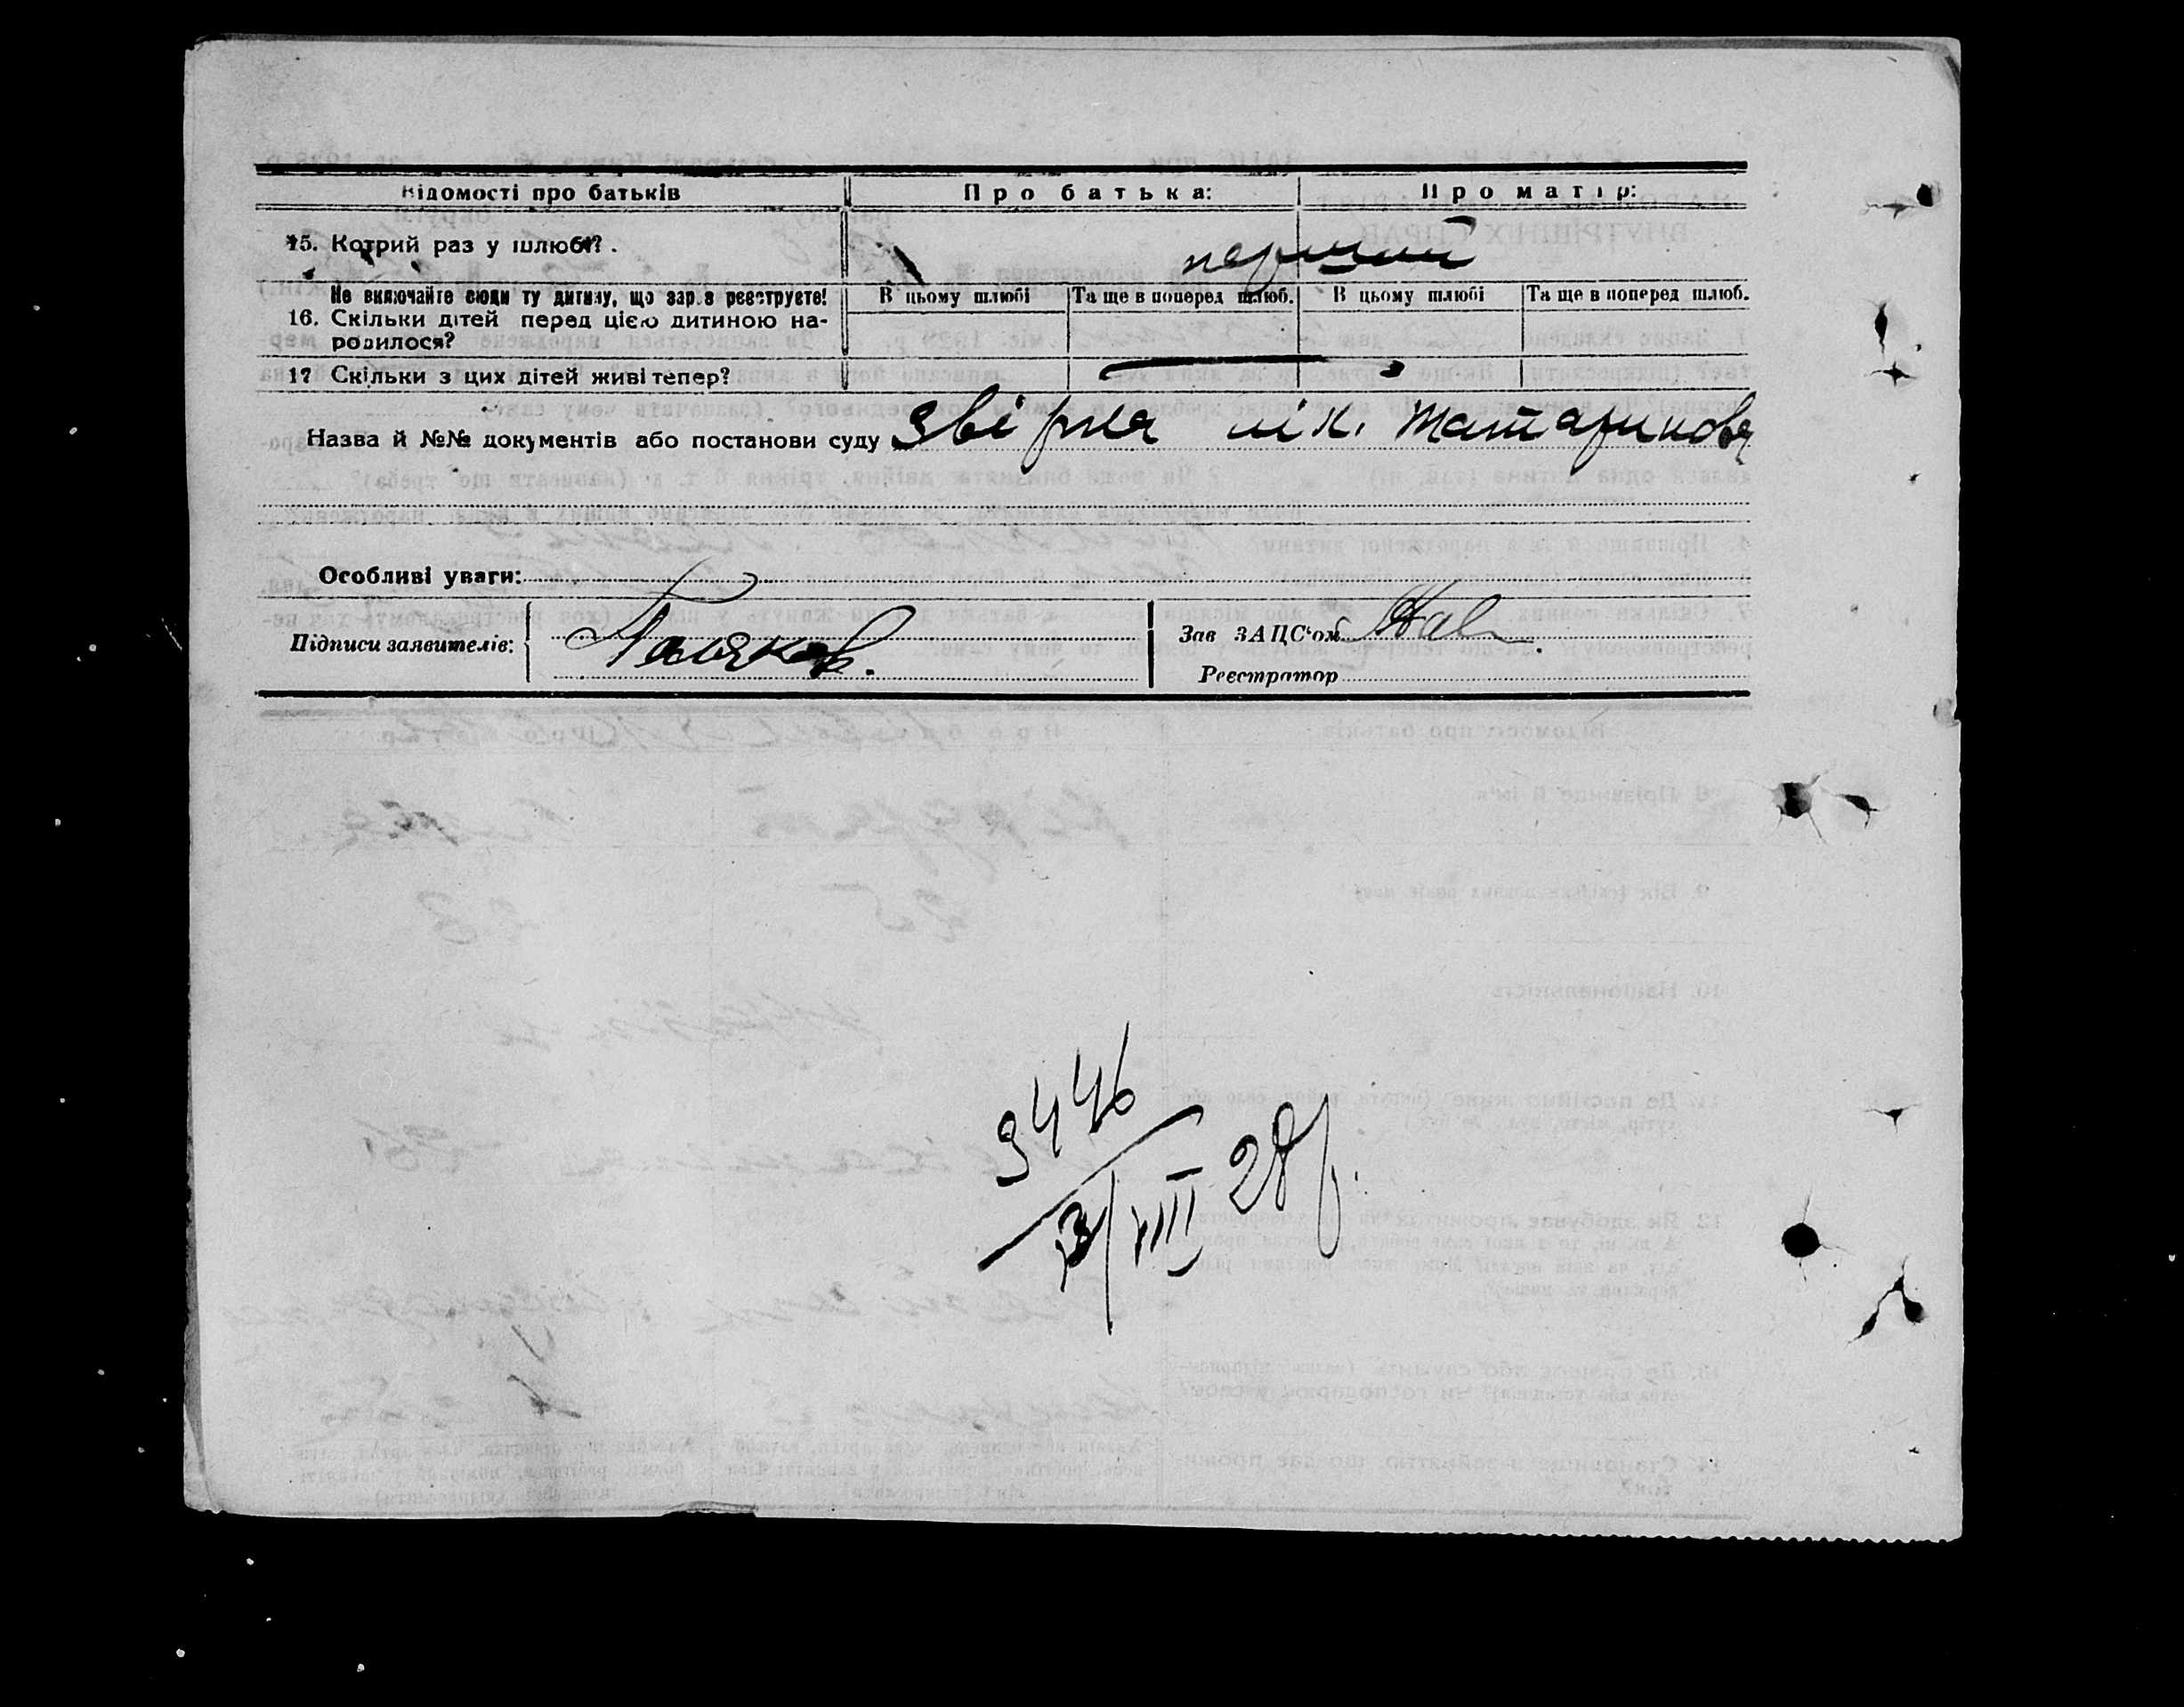 Відомості про батьків
Про батька:
Про матір:
15. Котрий раз у шлюбі?
перший
Не включайте сюди ту дитину, що зараз реєструєте!
16. Скільки дітей перед цією дитиною на-
родилося?
В цьому шлюбі
Та ще в поперед шлюб.
В цьому шлюбі
Та ще в поперед шлюб.
17 Скільки з цих дітей живі тепер?
—
Назва й №№ документів або постанови суду звірка лік. Татаринова
Особливі уваги:
Підписи заявителів:
Поляков.
Зав ЗАЦС'ом
Реєстратор
3/VIII 28р.